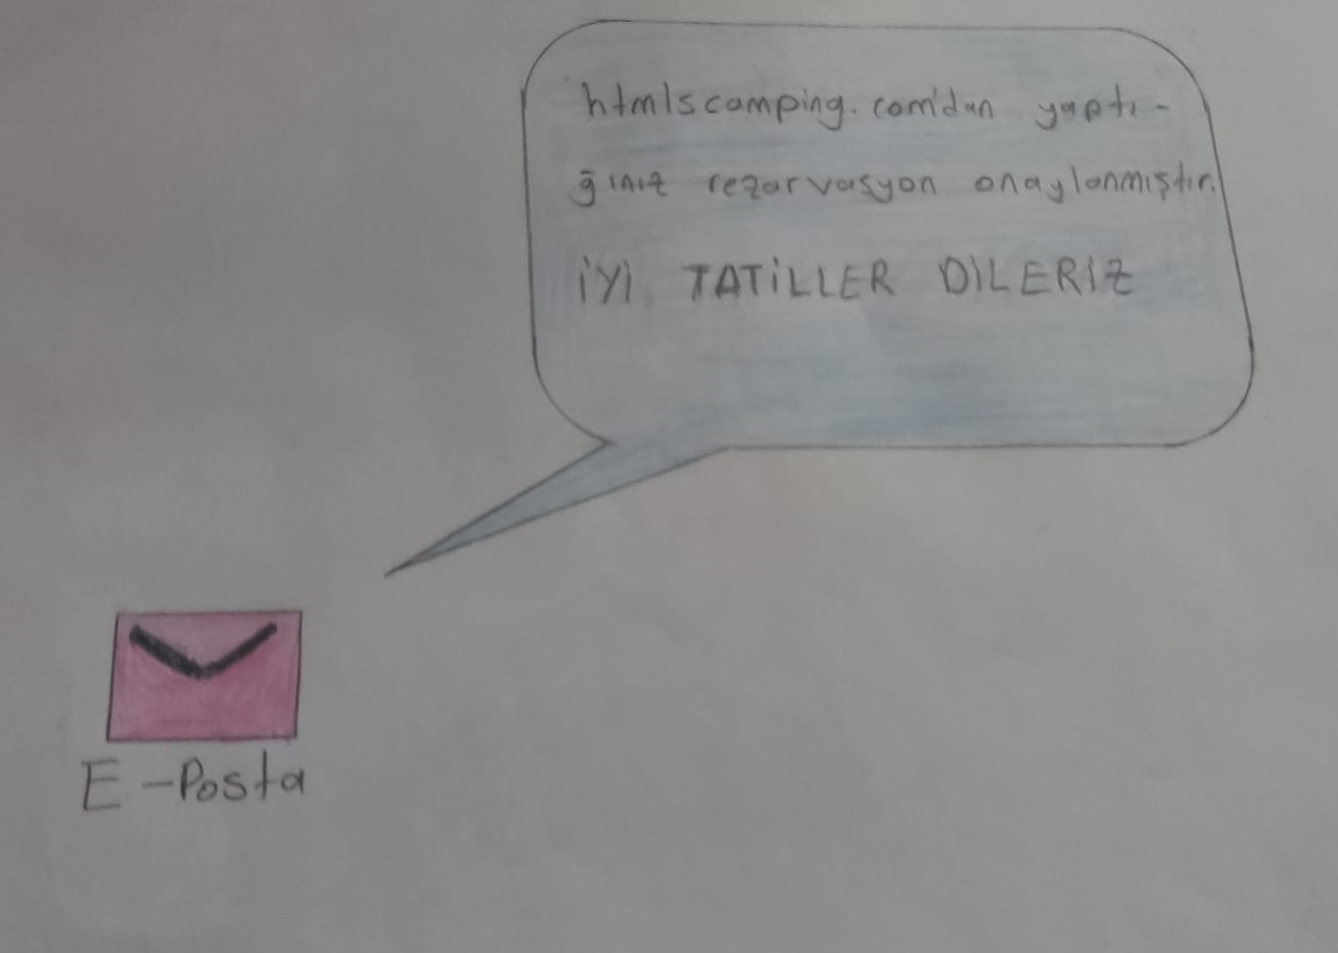 htmlscamping.com'dan yaptı-
ğınız rezarvasyon onaylanmıştır.
İYİ TATİLLER DİLERİZ
E-Posta